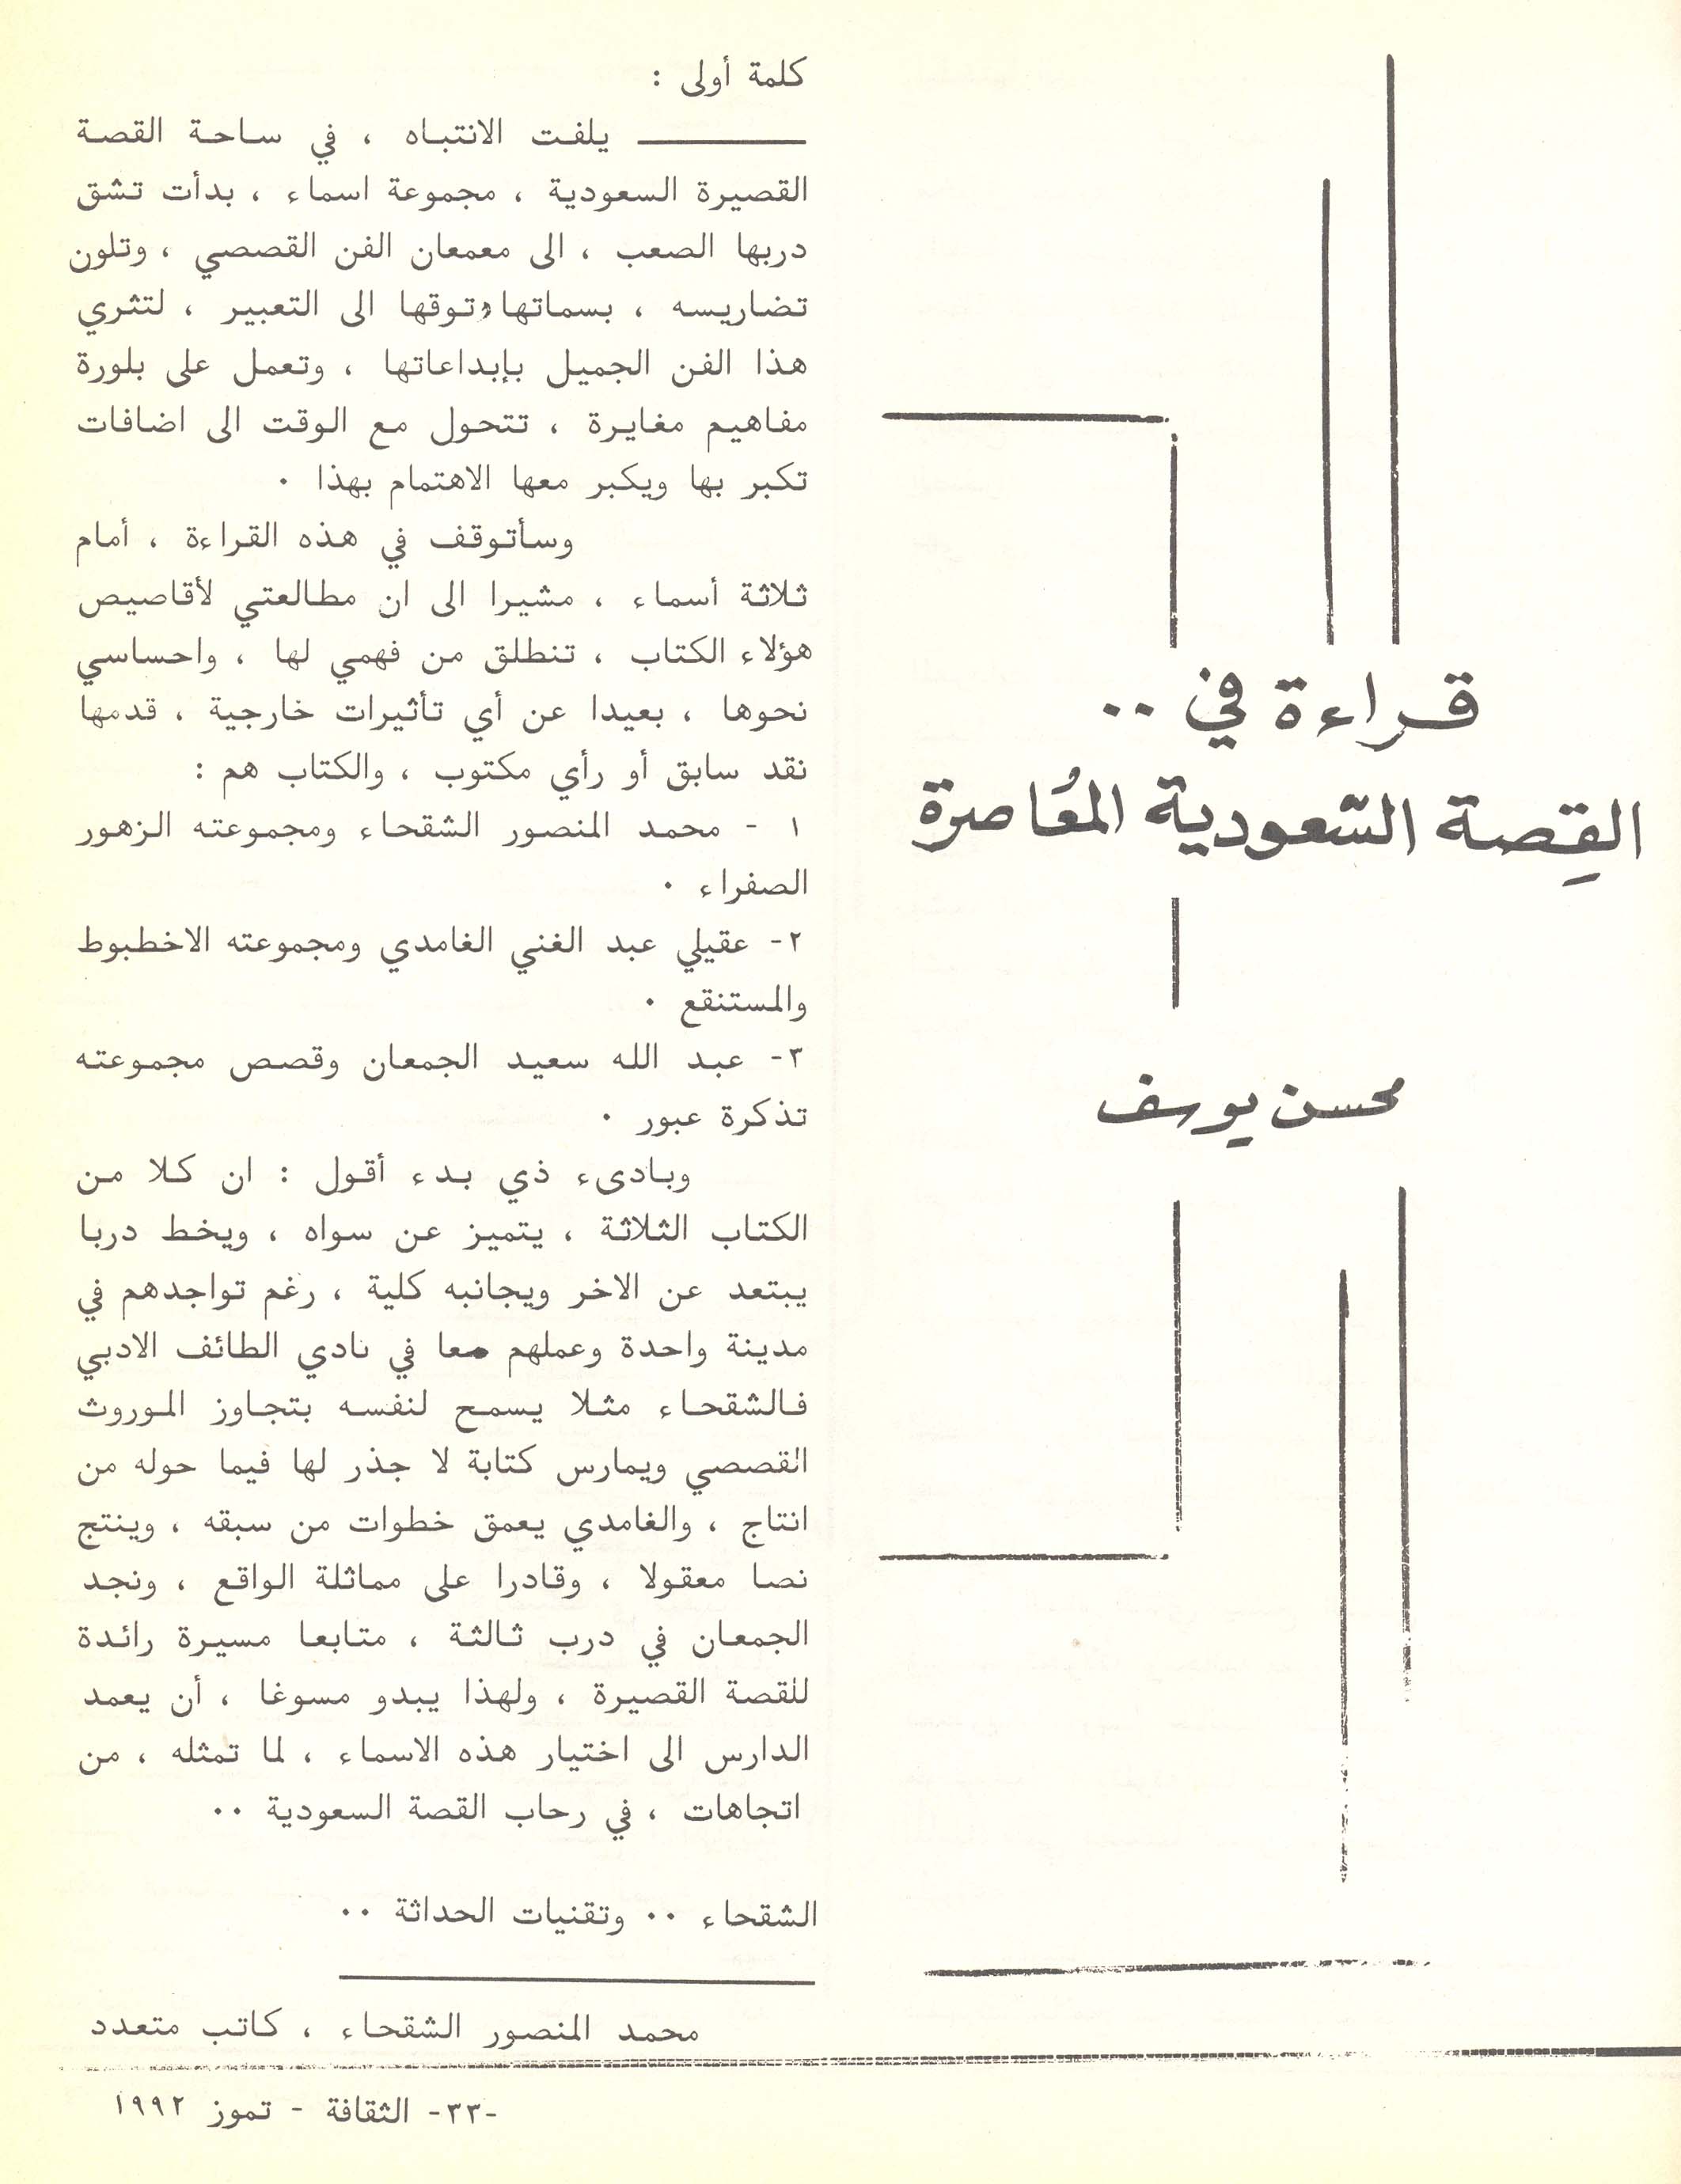 قراءة في ..
القِصة السّعودية المعُاصرة
محسن يوسف
كلمة أولى :
يلفت الانتباه ، في ساحة القصة
القصيرة السعودية ، مجموعة اسماء ، بدأت تشق
دربها الصعب ، الى معمعان الفن القصصي ، وتلون
تضاريسه ، بسماتها وتوقها الى التعبير ، لتثري
هذا الفن الجميل بإبداعاتها ، وتعمل على بلورة
مفاهيم مغايرة ، تتحول مع الوقت الى اضافات
تكبر بها ويكبر معها الاهتمام بهذا .
وسأتوقف في هذه القراءة ، أمام
ثلاثة أسماء ، مشيرا الى ان مطالعتي لأقاصيص
هؤلاء الكتاب ، تنطلق من فهمي لها ، واحساسي
نحوها ، بعيدا عن أي تأثيرات خارجية ، قدمها
نقد سابق أو رأي مكتوب ، والكتاب هم :
١ - محمد المنصور الشقحاء ومجموعته الزهور
الصفراء .
٢- عقيلي عبد الغني الغامدي ومجموعته الاخطبوط
والمستنقع .
٣- عبد الله سعيد الجمعان وقصص مجموعته
تذكرة عبور .
وبادىء ذي بدء أقول : ان كلا من
الكتاب الثلاثة ، يتميز عن سواه ، ويخط دربا
يبتعد عن الاخر ويجانبه كلية ، رغم تواجدهم في
مدينة واحدة وعملهم معا في نادي الطائف الادبي
فالشقحاء مثلا يسمح لنفسه بتجاوز الموروث
القصصي ويمارس كتابة لا جذر لها فيما حوله من
انتاج ، والغامدي يعمق خطوات من سبقه ، وينتج
نصا معقولا ، وقادرا على مماثلة الواقع ، ونجد
الجمعان في درب ثالثة ، متابعا مسيرة رائدة
للقصة القصيرة ، ولهذا يبدو مسوغا ، أن يعمد
الدارس الى اختيار هذه الاسماء ، لما تمثله ، من
اتجاهات ، في رحاب القصة السعودية ..
الشقحاء .. وتقنيات الحداثة ..
محمد المنصور الشقحاء ، كاتب متعدد
-٣٣- الثقافة - تموز ١٩٩٢